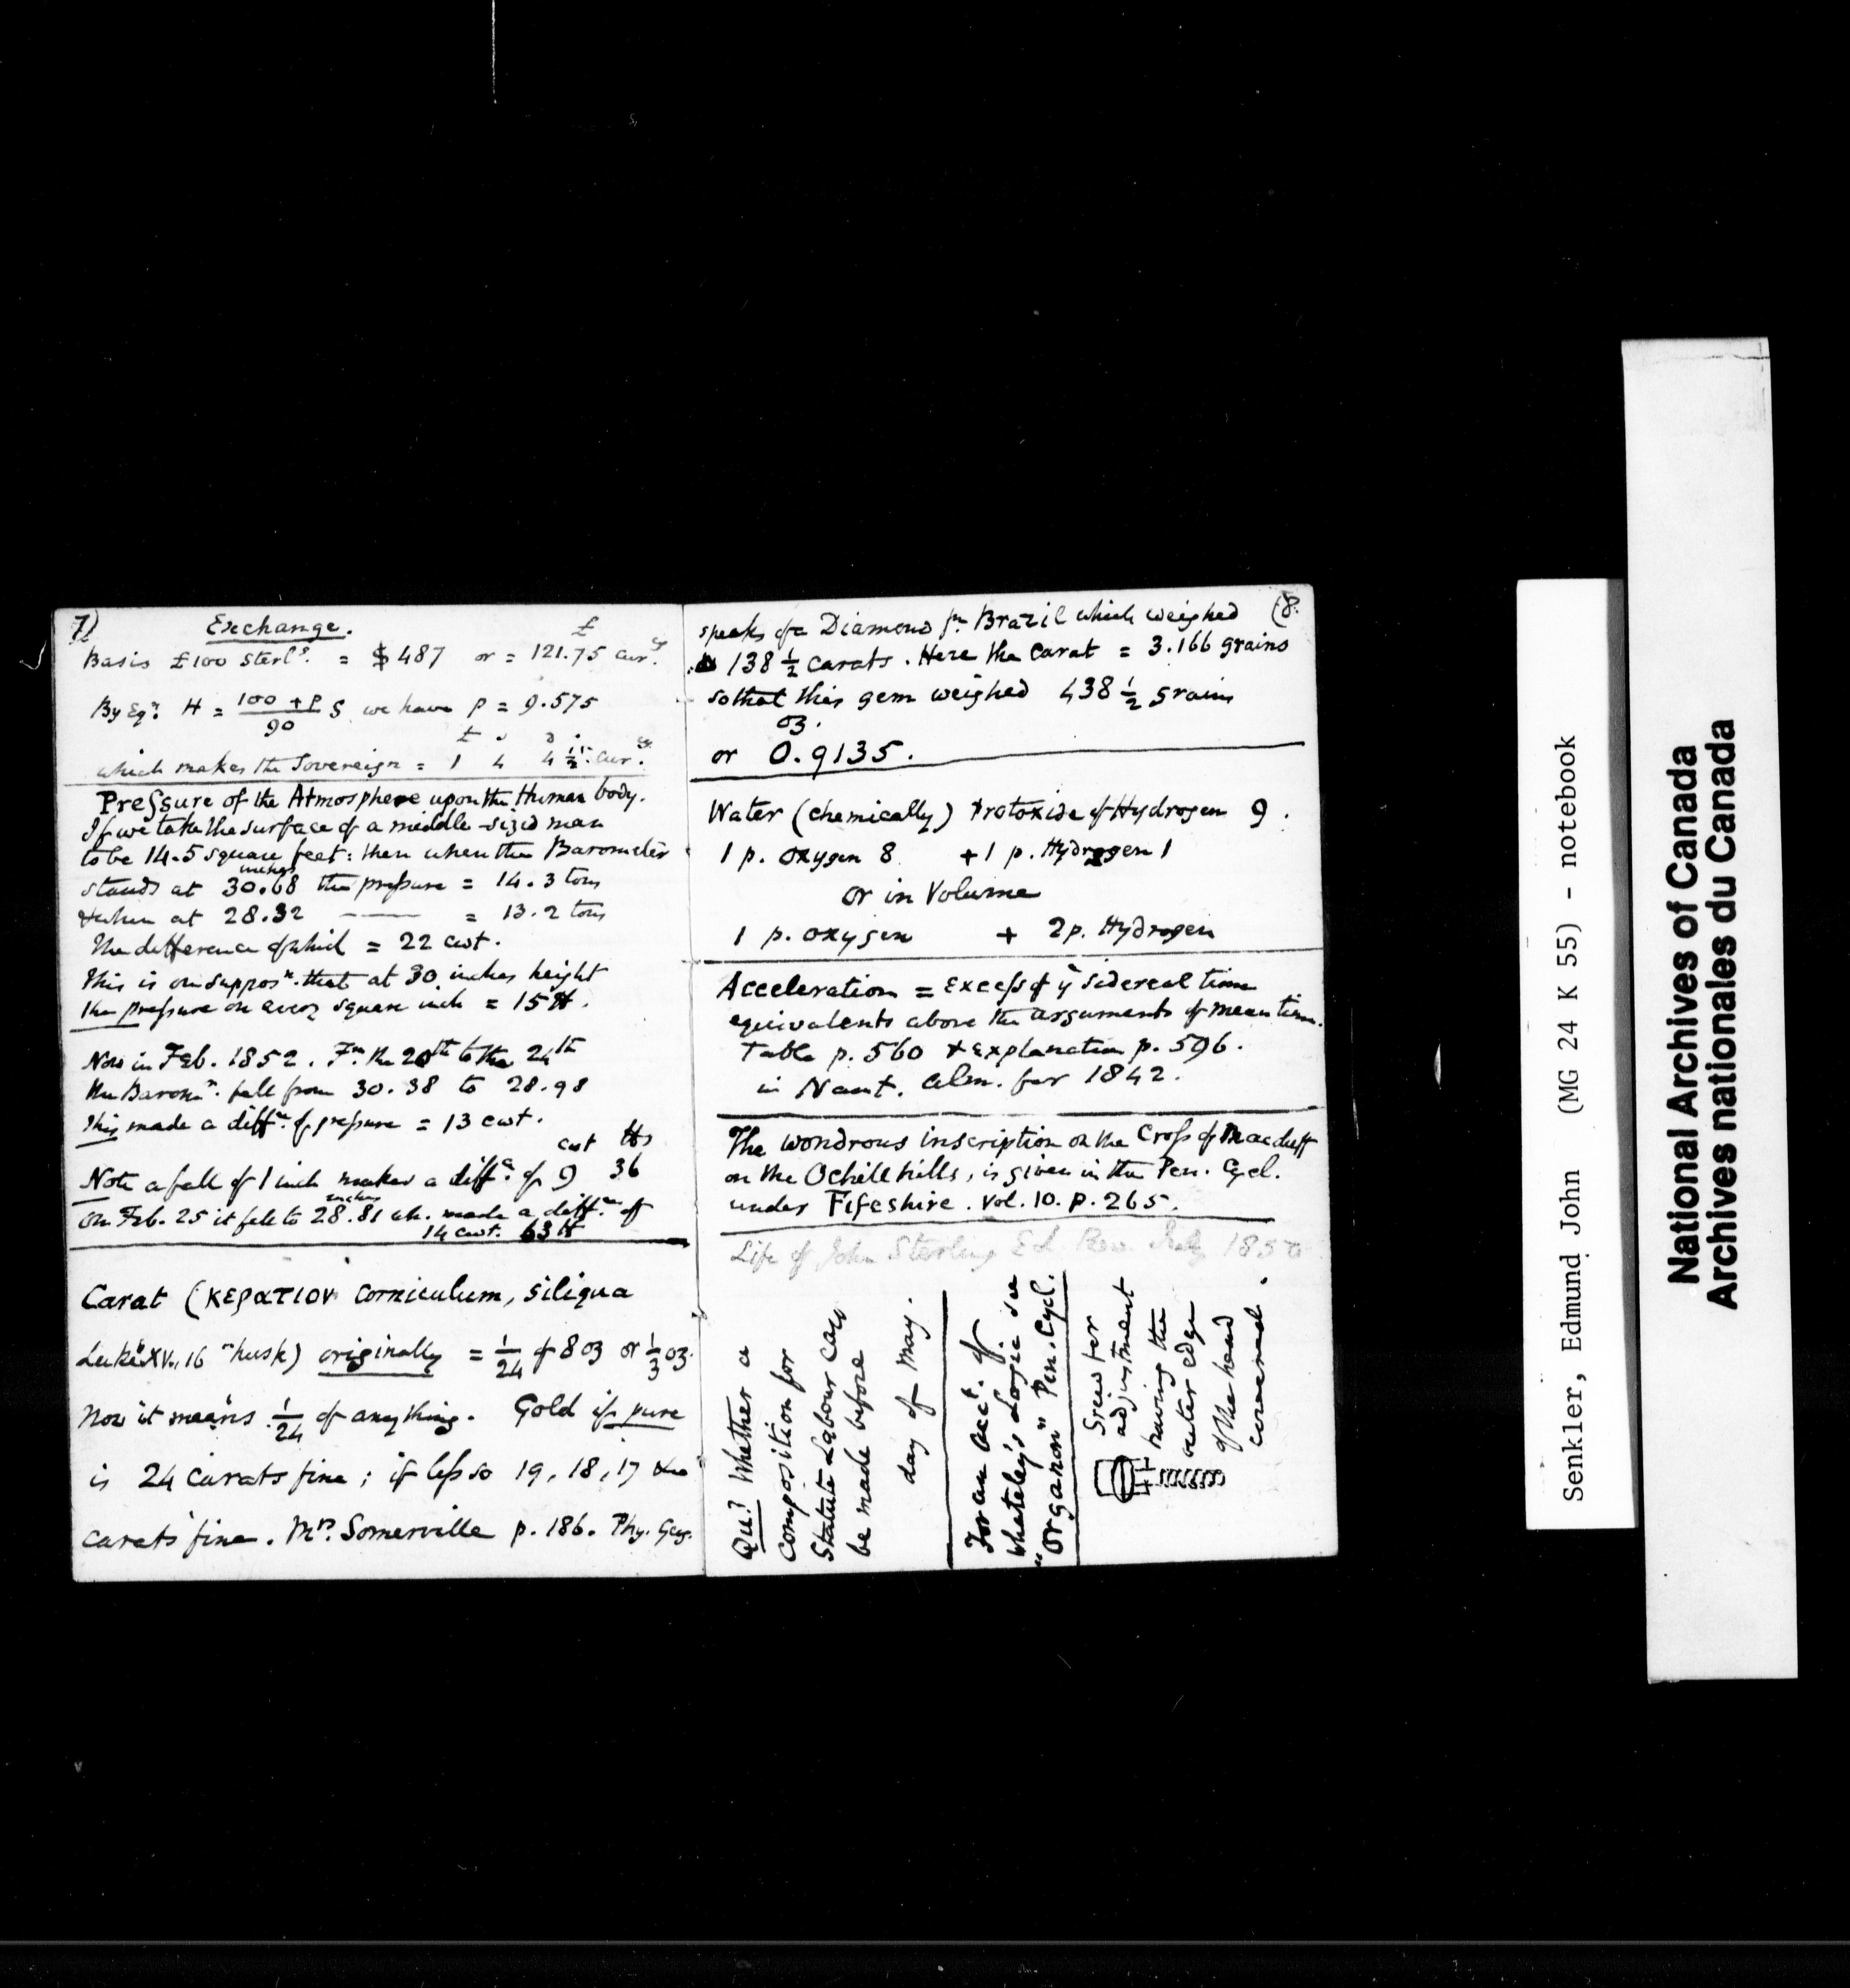 7)
Exchange.
£
Basis £100 Sterlg. = $487 or = 121.75 curcy.
By Eqn. H = 100 + P / 90 S we have P = 9.575
£ s D
which makes the Sovereign = 1 4 4 1/2 curcy.
Pressure of the Atmosphere upon the Human body.
If we take the surface of a middle-sized man
to be 14.5 square feet: then when the Barometer
inches
stands at 30.68 the pressure = 14.3 tons
& when at 28.32 —— = 13.2 tons
The difference of which = 22 cwt.
This is on supposn. that at 30 inches height
the pressure on every square inch = 15 ℔.
Now in Feb. 1852. Fm. the 20th to the 24th
the Baromr. fell from 30.38 to 28.98
this made a diffce. of pressure = 13 cwt.
cwt ℔s
Note a fall of 1 inch makes a diffce. of 9 36
inches
On Feb. 25 it fell to 28.81 wh. made a diffce. of
14 cwt. 63 ℔
Carat (κερατιον corniculum, siliqua
Luke XV., 16 "husk) originally = 1/24 of 8 oz or 1/3 oz.
Now it means 1/24 of anything. Gold if pure
is 24 carats fine; if less so 19, 18, 17 &c
carats fine. Mrs. Somerville p. 186. Phy. Geog.
(8.
speaks of a Diamond fm. Brazil which weighed
138 1/2 carats. Here the carat = 3.166 grains
so that this gem weighed 438 1/2 grains
oz.
or 0.9135.
Water (chemically) Protoxide of Hydrogen 9.
1 p. oxygen 8 + 1 p. Hydrogen 1
or in Volume
1 p. oxygen + 2p. Hydrogen
Acceleration = excess of ye sidereal time
equivalents above the arguments of mean time.
Table p. 560 & explanation p. 596.
in Naut. Alm. for 1842.
The wondrous inscription on the Cross of Macduff
on the Ochill hills, is given in the Pen. Cycl.
under Fifeshire. Vol. 10. p. 265.
Life of John Sterling Ed. Rev. July 1850
Qu? Whether a
composition for
Statute Labour can
be made before
day of May.
For an acct. of
Whateley's Logic see
"Organon" Pen. Cycl.
Screw for
adjustment
having the
outer edge
of the head
covered.
Senkler, Edmund John (MG 24 K 55) - notebook
National Archives of Canada
Archives nationales du Canada